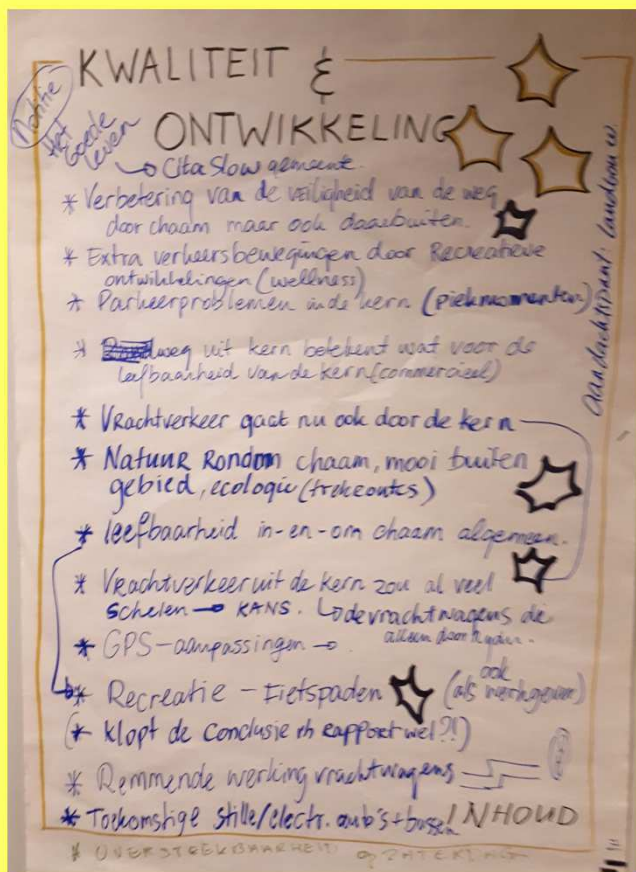 KWALITEIT &
ONTWIKKELING
Notitie
Het
Goede
leven
→ CitaSlow gemeente.
* Verbetering van de veiligheid van de weg
door chaam maar ook daarbuiten.
* Extra verkeersbewegingen door Recreatieve
ontwikkelingen (wellness)
* Parkeerproblemen in de kern (piekmomenten)
* weg uit kern betekent wat voor de
leefbaarheid van de kern (commercieel)
* Vrachtverkeer gaat nu ook door de kern
* Natuur Rondom chaam, mooi buiten
gebied, ecologie (trekroutes)
* leefbaarheid in-en-om chaam algemeen.
* Vrachtverkeer uit de kern zou al veel
schelen → KANS. ↳ de vrachtwagens die
alleen door
* GPS-aanpassingen →
* Recreatie - Fietspaden (ook
als werkgever)
(* klopt de conclusie rh Rapport wel?!)
* Remmende werking vrachtwagens
* Toekomstige stille/electr. + bussen INHOUD
* OVERSTEEKBAARHEID
Aandachtspunt: landbouw